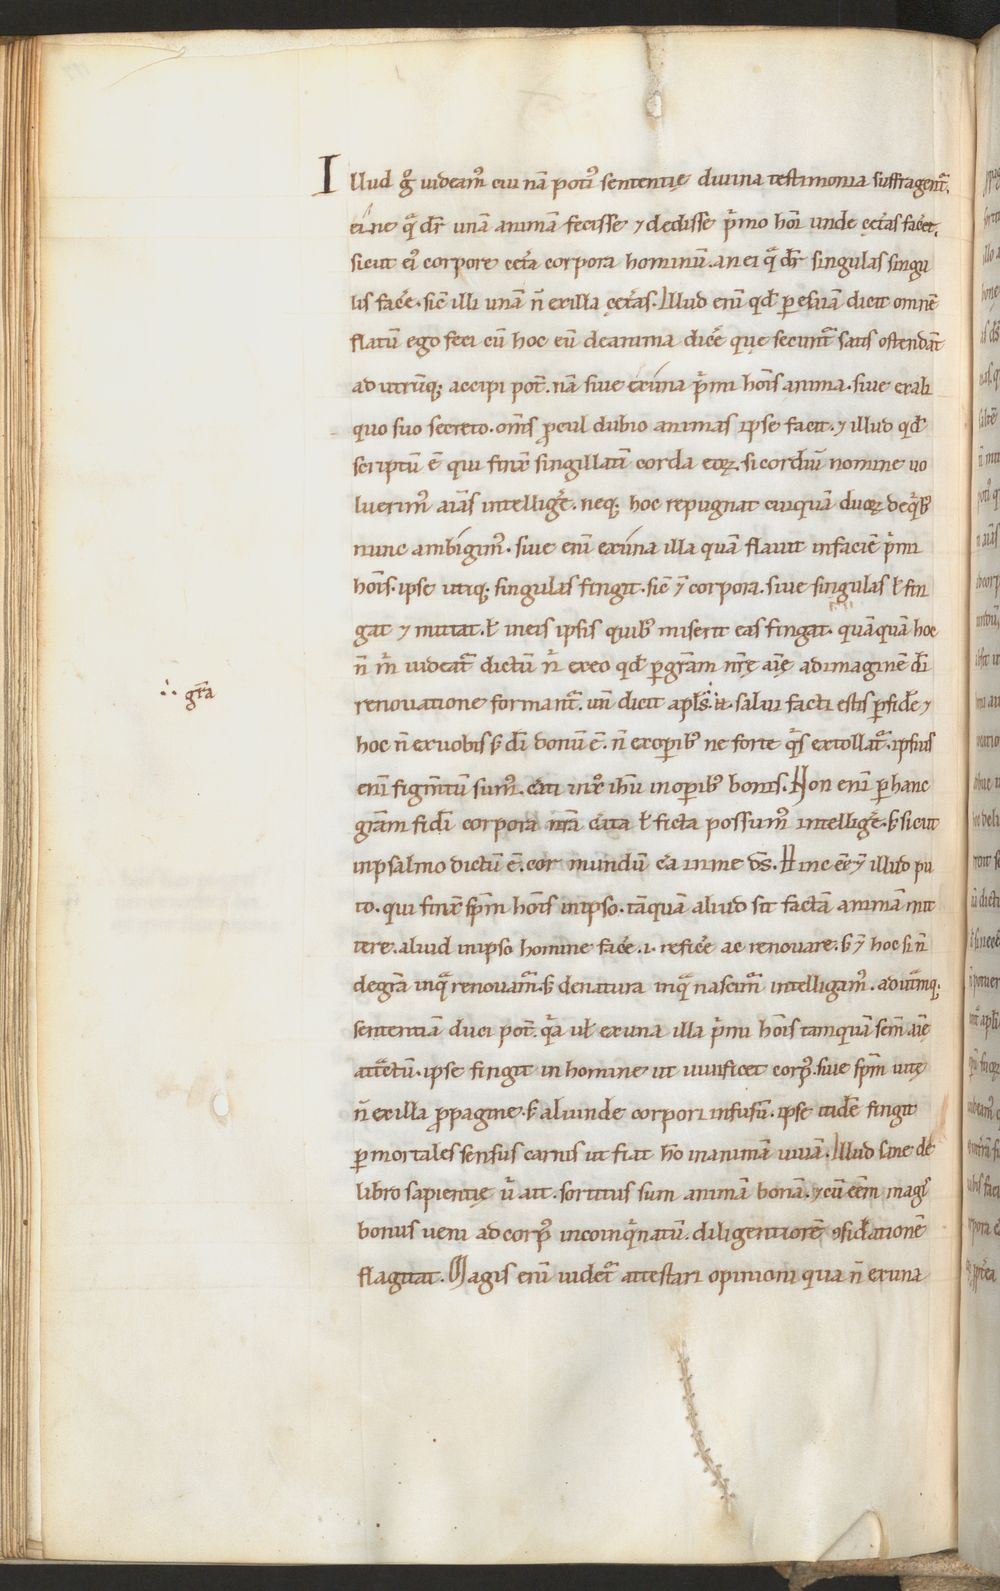 Illud gͦ uideam᷒ cui nā poti᷒ sententię diuina testimonia suffragent᷑.
eine q̄ dr̄ unā animā fecisse ⁊ dedisse p̓mo hoī unde cęt̄as facet.
sicut ei᷒ corpore cet̄a corpora hominū. an ei q̄ dr̄ singulas singu
lis facē. sic̄ illi unā n̄ ex illa cęt̄as. Illud eni qd̄ p esaiā dicit omnē
flatū ego feci cū hoc eū de anima dicē que secunt᷑ satis ostendāt
ad utrūq; accipi pot̄. nā siue ex una p̓mi hoīs anima. siue ex ali
quo suo secreto. om̄s ꝓcul dubio animas ipse facit. ⁊ illud qd̄
scriptū ē qui finx̄ singillatī corda eoꝝ. si cordiū nomine uo
luerim᷒ aīas intelligē. neq; hoc repugnat cuiquā duoꝝ de q̓b᷒
nunc ambigim᷒. siue eni ex una illa quā flauit in faciē p̓mi
hoīs. ipse utiq; singulas fingit. sic̄ ⁊ corpora. siue singulas ł fin
gat ⁊ mittat. ł in eis ipsis quib᷒ miserit eas fingat. quāquā hoc
n̄ m̓ uideat᷑ dictū n̓ ex eo qd̄ p grām nrę aīę ad imaginē dī
renouatione formant᷑. un̄ dicit apłs. ∴ salui facti estis p fidē ⁊
hoc n̄ ex uobis s; dī donū ē. n̄ ex opib᷒ ne forte q̓s extollat᷑. ipsius
eni figm̄tū sum᷒. c̄ati in xͦ ihū in opib᷒ bonis. Non eni p hanc
grām fidī corpora nr̄a c̄ata ł ficta possum᷒ intelligē. s; sicut
in psalmo dictū ē. cor mundū c̄a in me ds̄. Hinc eē ⁊ illud pu
to. qui finx̄ sp̄m hoīs in ipso. tāquā aliud sit factā animā mit
tere. aliud in ipso homine facē. i. reficē ac renouare. s; ⁊ hoc si n̄
de gr̄a in q̄ renouam᷑. s; de natura in q̄ nascim᷑ intelligam᷒. ad utāmq;
sententiā duci pot̄. q̓a uł ex una illa p̓mi hoīs tamquā sem̄ aīę
att̄ctū. ipse fingit in homine ut uiuificet corp᷒. siue sp̄m uitę
n̄ ex illa ꝓpagine. s; aliunde corpori infusū. ipse itidē fingit
p mortales sensus carnis ut fiat hō in animā uiuā. Illud sane de
libro sapientię u̓ ait. sortitus sum animā bonā. ⁊ cū eēm magi᷒
bonus ueni ad corp᷒ incoinq̓natū. diligentiorē ꝯsid̄ationē
flagitat. Magis eni uidet᷑ attestari opinioni qua n̄ ex una
∴ gr̄a